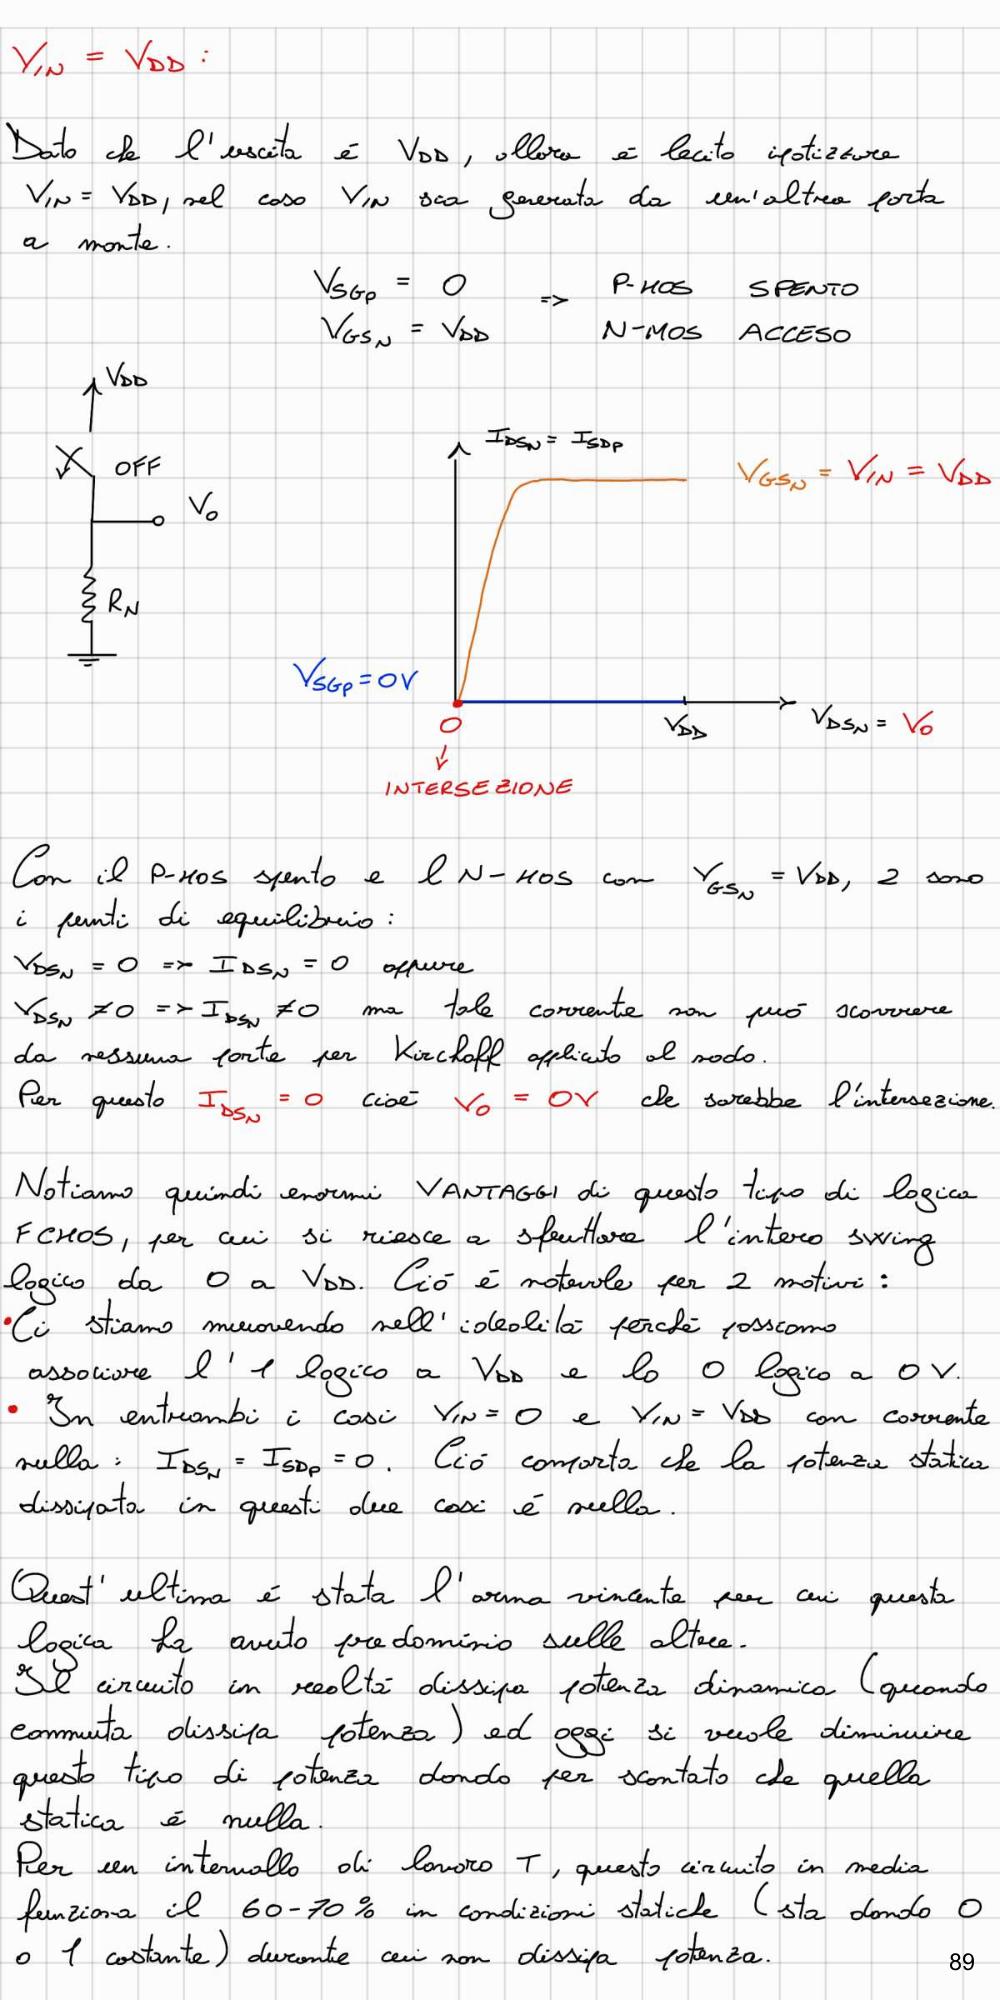 V_IN = V_DD :
Dato che l'uscita é V_DD, allora é lecito ipotizzare
V_IN = V_DD, nel caso V_IN sia generata da un'altra porta
a monte.
V_SGp = 0 => P-MOS SPENTO
V_GSN = V_DD N-MOS ACCESO
V_DD
OFF
V_o
R_N
I_DSN = I_SDp
V_GSN = V_IN = V_DD
V_SGp = 0V
0
V_DD
V_DSN = V_o
INTERSEZIONE
Con il P-MOS spento e l N-MOS con V_GSN = V_DD, 2 sono
i punti di equilibrio :
V_DSN = 0 => I_DSN = 0 oppure
V_DSN ≠ 0 => I_DSN ≠ 0 ma tale corrente non puó scorrere
da nessuna parte per Kirchoff applicato al nodo.
Per questo I_DSN = 0 cioé V_o = 0V che sarebbe l'intersezione.
Notiamo quindi enormi VANTAGGI di questo tipo di logica
FCMOS, per cui si riesce a sfruttare l'intero swing
logico da 0 a V_DD. Ció é notevole per 2 motivi :
• Ci stiamo muovendo nell'idealitá perché possiamo
associare l'1 logico a V_DD e lo 0 logico a 0V.
• In entrambi i casi V_IN = 0 e V_IN = V_DD con corrente
nulla : I_DSN = I_SDp = 0. Ció comporta che la potenza statica
dissipata in questi due casi é nulla.
Quest'ultima é stata l'arma vincente per cui questa
logica ha avuto predominio sulle altre.
Il circuito in realtá dissipa potenza dinamica (quando
commuta dissipa potenza) ed oggi si vuole diminuire
questo tipo di potenza dando per scontato che quella
statica é nulla.
Per un intervallo di lavoro T, questo circuito in media
funziona il 60-70% in condizioni statiche (sta dando 0
o 1 costante) durante cui non dissipa potenza.
89